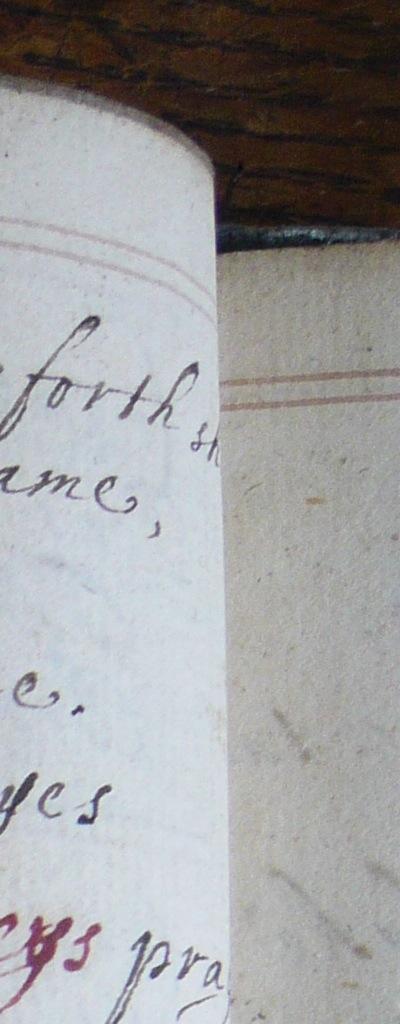 forth sh
ame,
e.
yes
eys pra